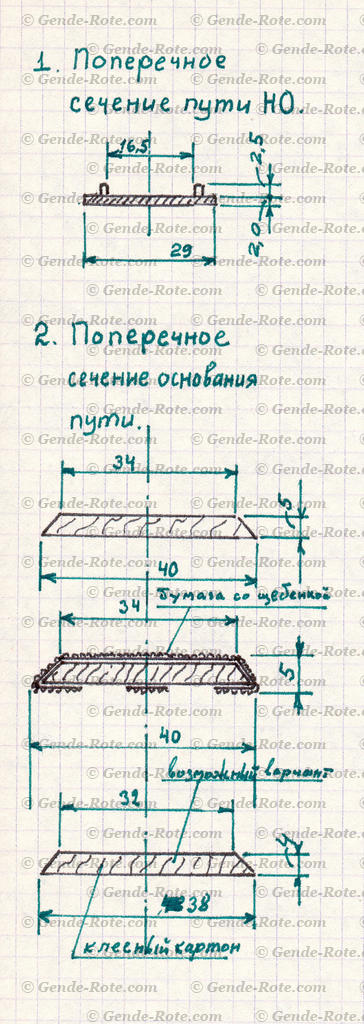 1. Поперечное
сечение пути НО.
16,5
2,5
2,0
29
2. Поперечное
сечение основания
пути.
34
5
40
34
бумага со щебенкой
5
40
возможный вариант
32
4
38
клееный картон
© Gende-Rote.com